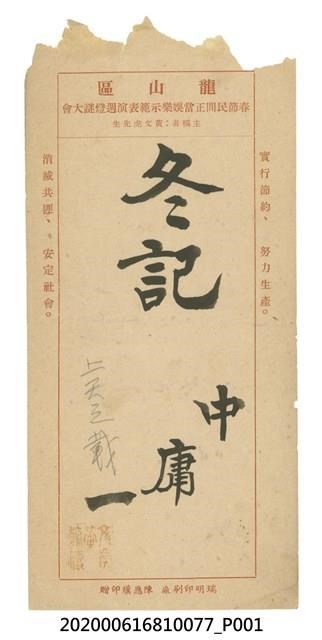 區山龍
會大謎燈週演表範示樂娛當正間民節春
主稿者：黃文虎先生
實行節約、努力生產。
冬記
中庸一
上天之載
消滅共匪、安定社會。
贈印璞應陳 廠刷印明瑞
202000616810077_P001